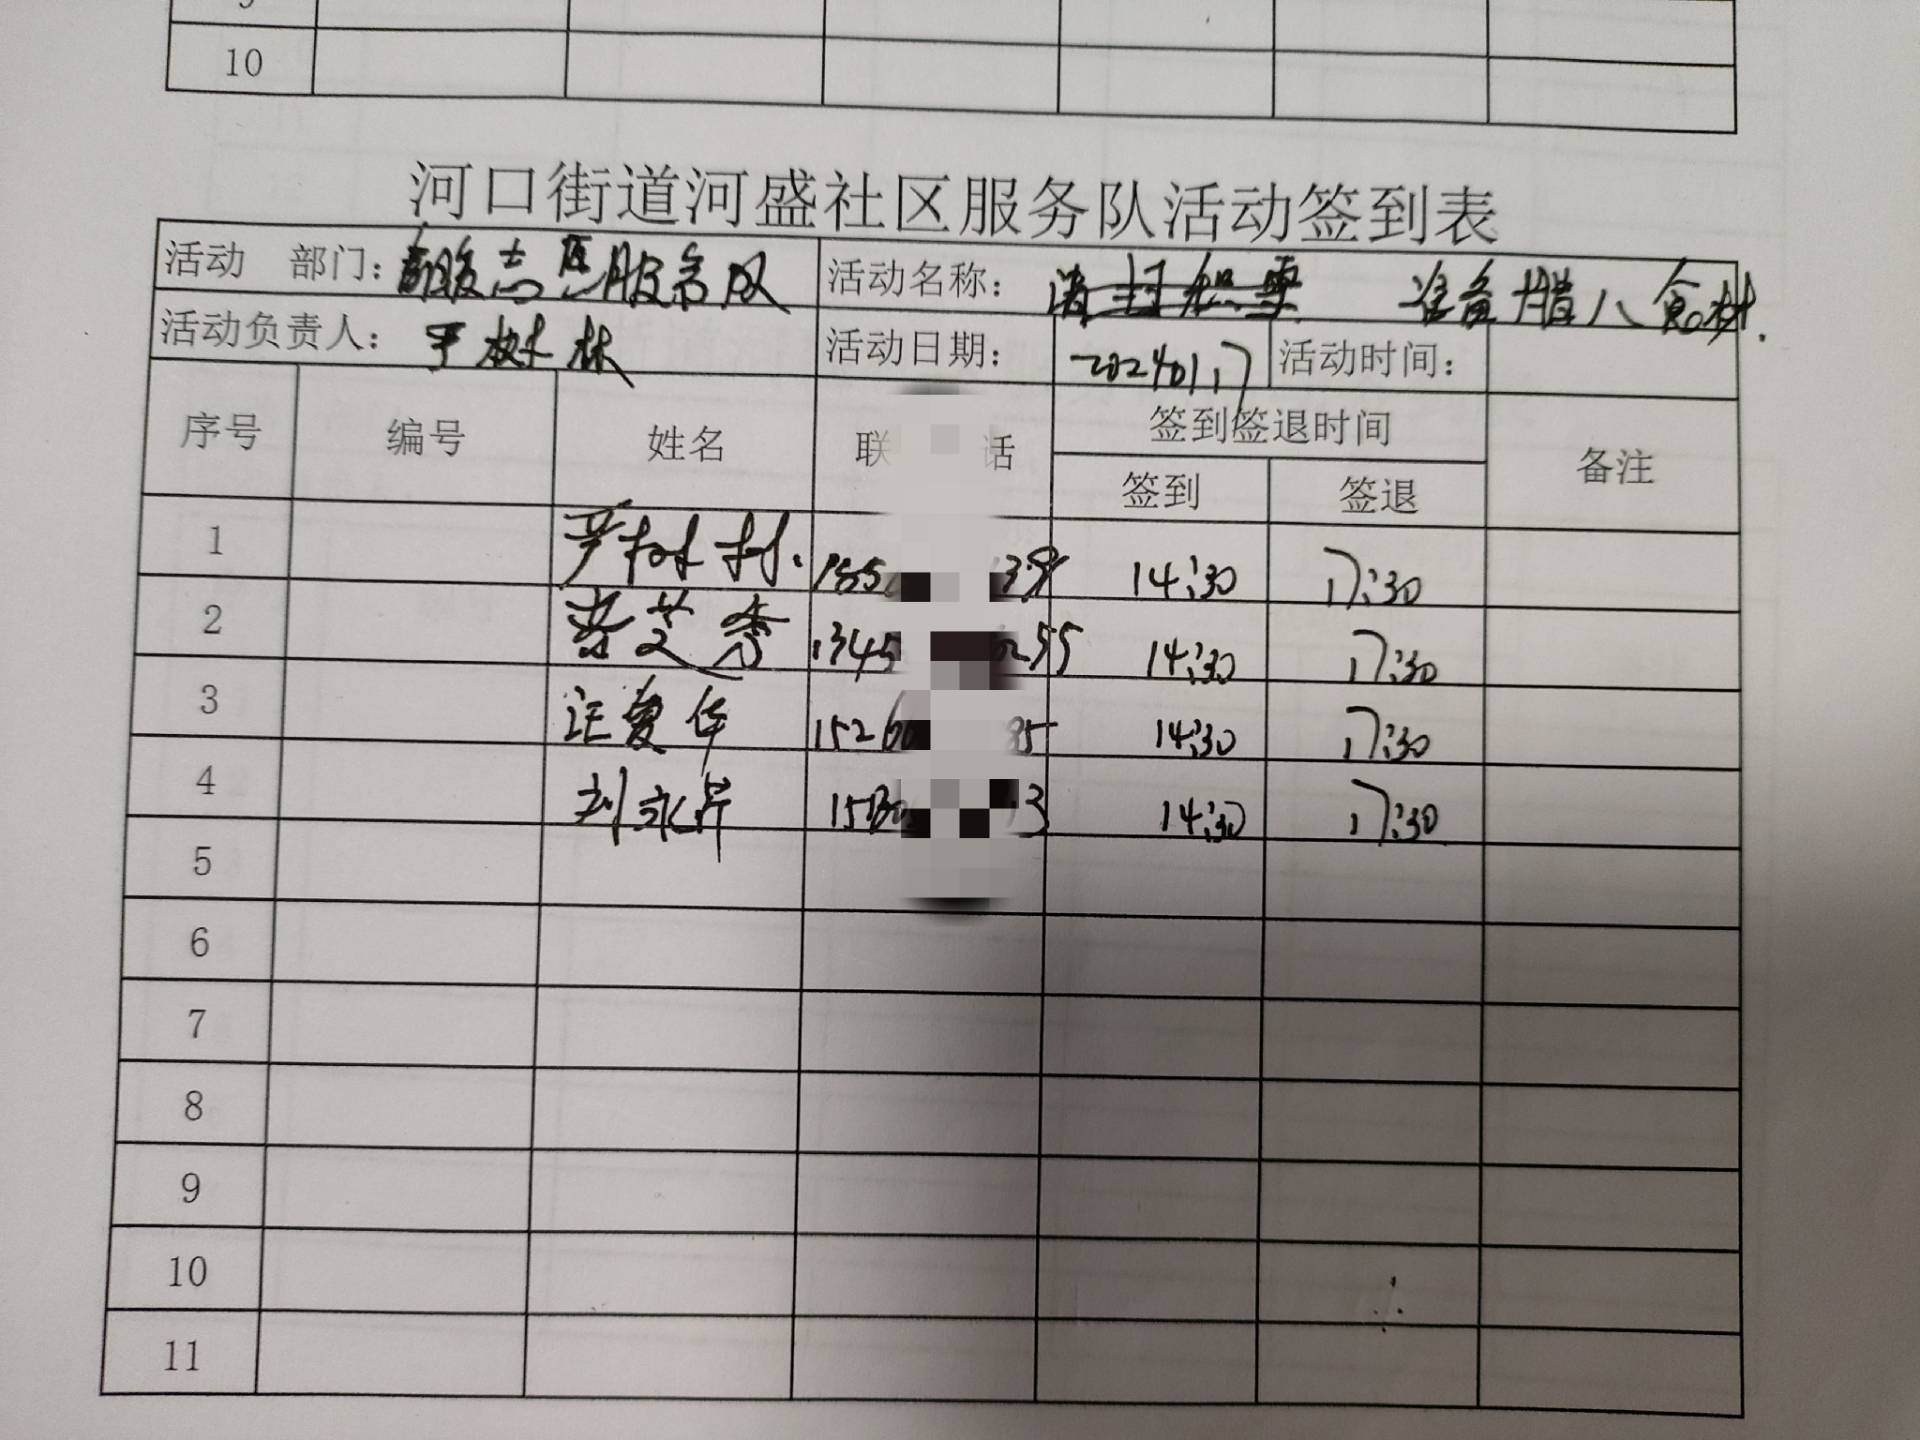 9
10
河口街道河盛社区服务队活动签到表
活动 部门： 志愿服务队 活动名称： 准备腊八食材.
活动负责人： 严树林 活动日期： 2024.01.17 活动时间：
序号 编号 姓名 联 话 签到签退时间 备注
签到 签退
1 严树林. 155 39 14:30 17:30
2 秀 1345 255 14:30 17:30
3 汪爱华 1526 85 14:30 17:30
4 刘永芹 3 14:30 17:30
5
6
7
8
9
10
11